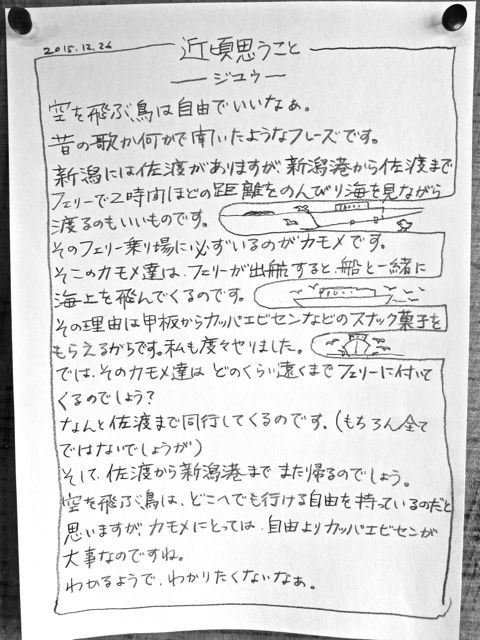 2015.12.26
近頃思うこと
―ジユウ―
空を飛ぶ鳥は自由でいいなぁ。
昔の歌か何かで聞いたようなフレーズです。
新潟には佐渡がありますが、新潟港から佐渡まで
フェリーで2時間ほどの距離をのんびり海を見ながら
渡るのもいいものです。
そのフェリー乗り場に必ずいるのがカモメです。
そこのカモメ達は、フェリーが出航すると、船と一緒に
海上を飛んでくるのです。
その理由は甲板からカッパエビセンなどのスナック菓子を
もらえるからです。私も度々やりました。
では、そのカモメ達は どのくらい遠くまでフェリーに付いて
くるのでしょう?
なんと佐渡まで同行してくるのです。(もちろん全て
ではないでしょうが)
そして、佐渡から新潟港まで また帰るのでしょう。
空を飛ぶ鳥は、どこへでも行ける自由を持っているのだと
思いますが、カモメにとっては、自由よりカッパエビセンが
大事なのですね。
わかるようで、わかりたくないなぁ。